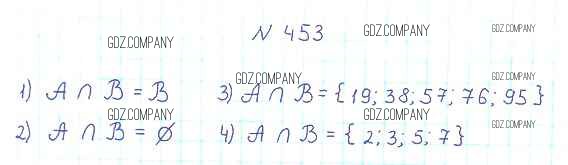 N 453
GDZ.COMPANY GDZ.COMPANY GDZ.COMPANY
GDZ.COMPANY GDZ.COMPANY
1) A ∩ B = B 3) A ∩ B = {19; 38; 57; 76; 95}
GDZ.COMPANY GDZ.COMPANY GDZ.COMPANY
2) A ∩ B = ∅ 4) A ∩ B = {2; 3; 5; 7}